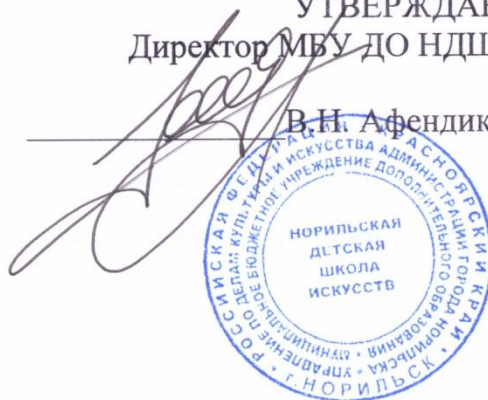 УТВЕРЖДА
Директор МБУ ДО НДШ
В.Н. Афендик
РОССИЙСКАЯ ФЕДЕРАЦИЯ КРАСНОЯРСКИЙ КРАЙ • Г. НОРИЛЬСК •
УПРАВЛЕНИЕ ПО ДЕЛАМ КУЛЬТУРЫ И ИСКУССТВА АДМИНИСТРАЦИИ ГОРОДА НОРИЛЬСКА •
МУНИЦИПАЛЬНОЕ БЮДЖЕТНОЕ УЧРЕЖДЕНИЕ ДОПОЛНИТЕЛЬНОГО ОБРАЗОВАНИЯ •
НОРИЛЬСКАЯ
ДЕТСКАЯ
ШКОЛА
ИСКУССТВ